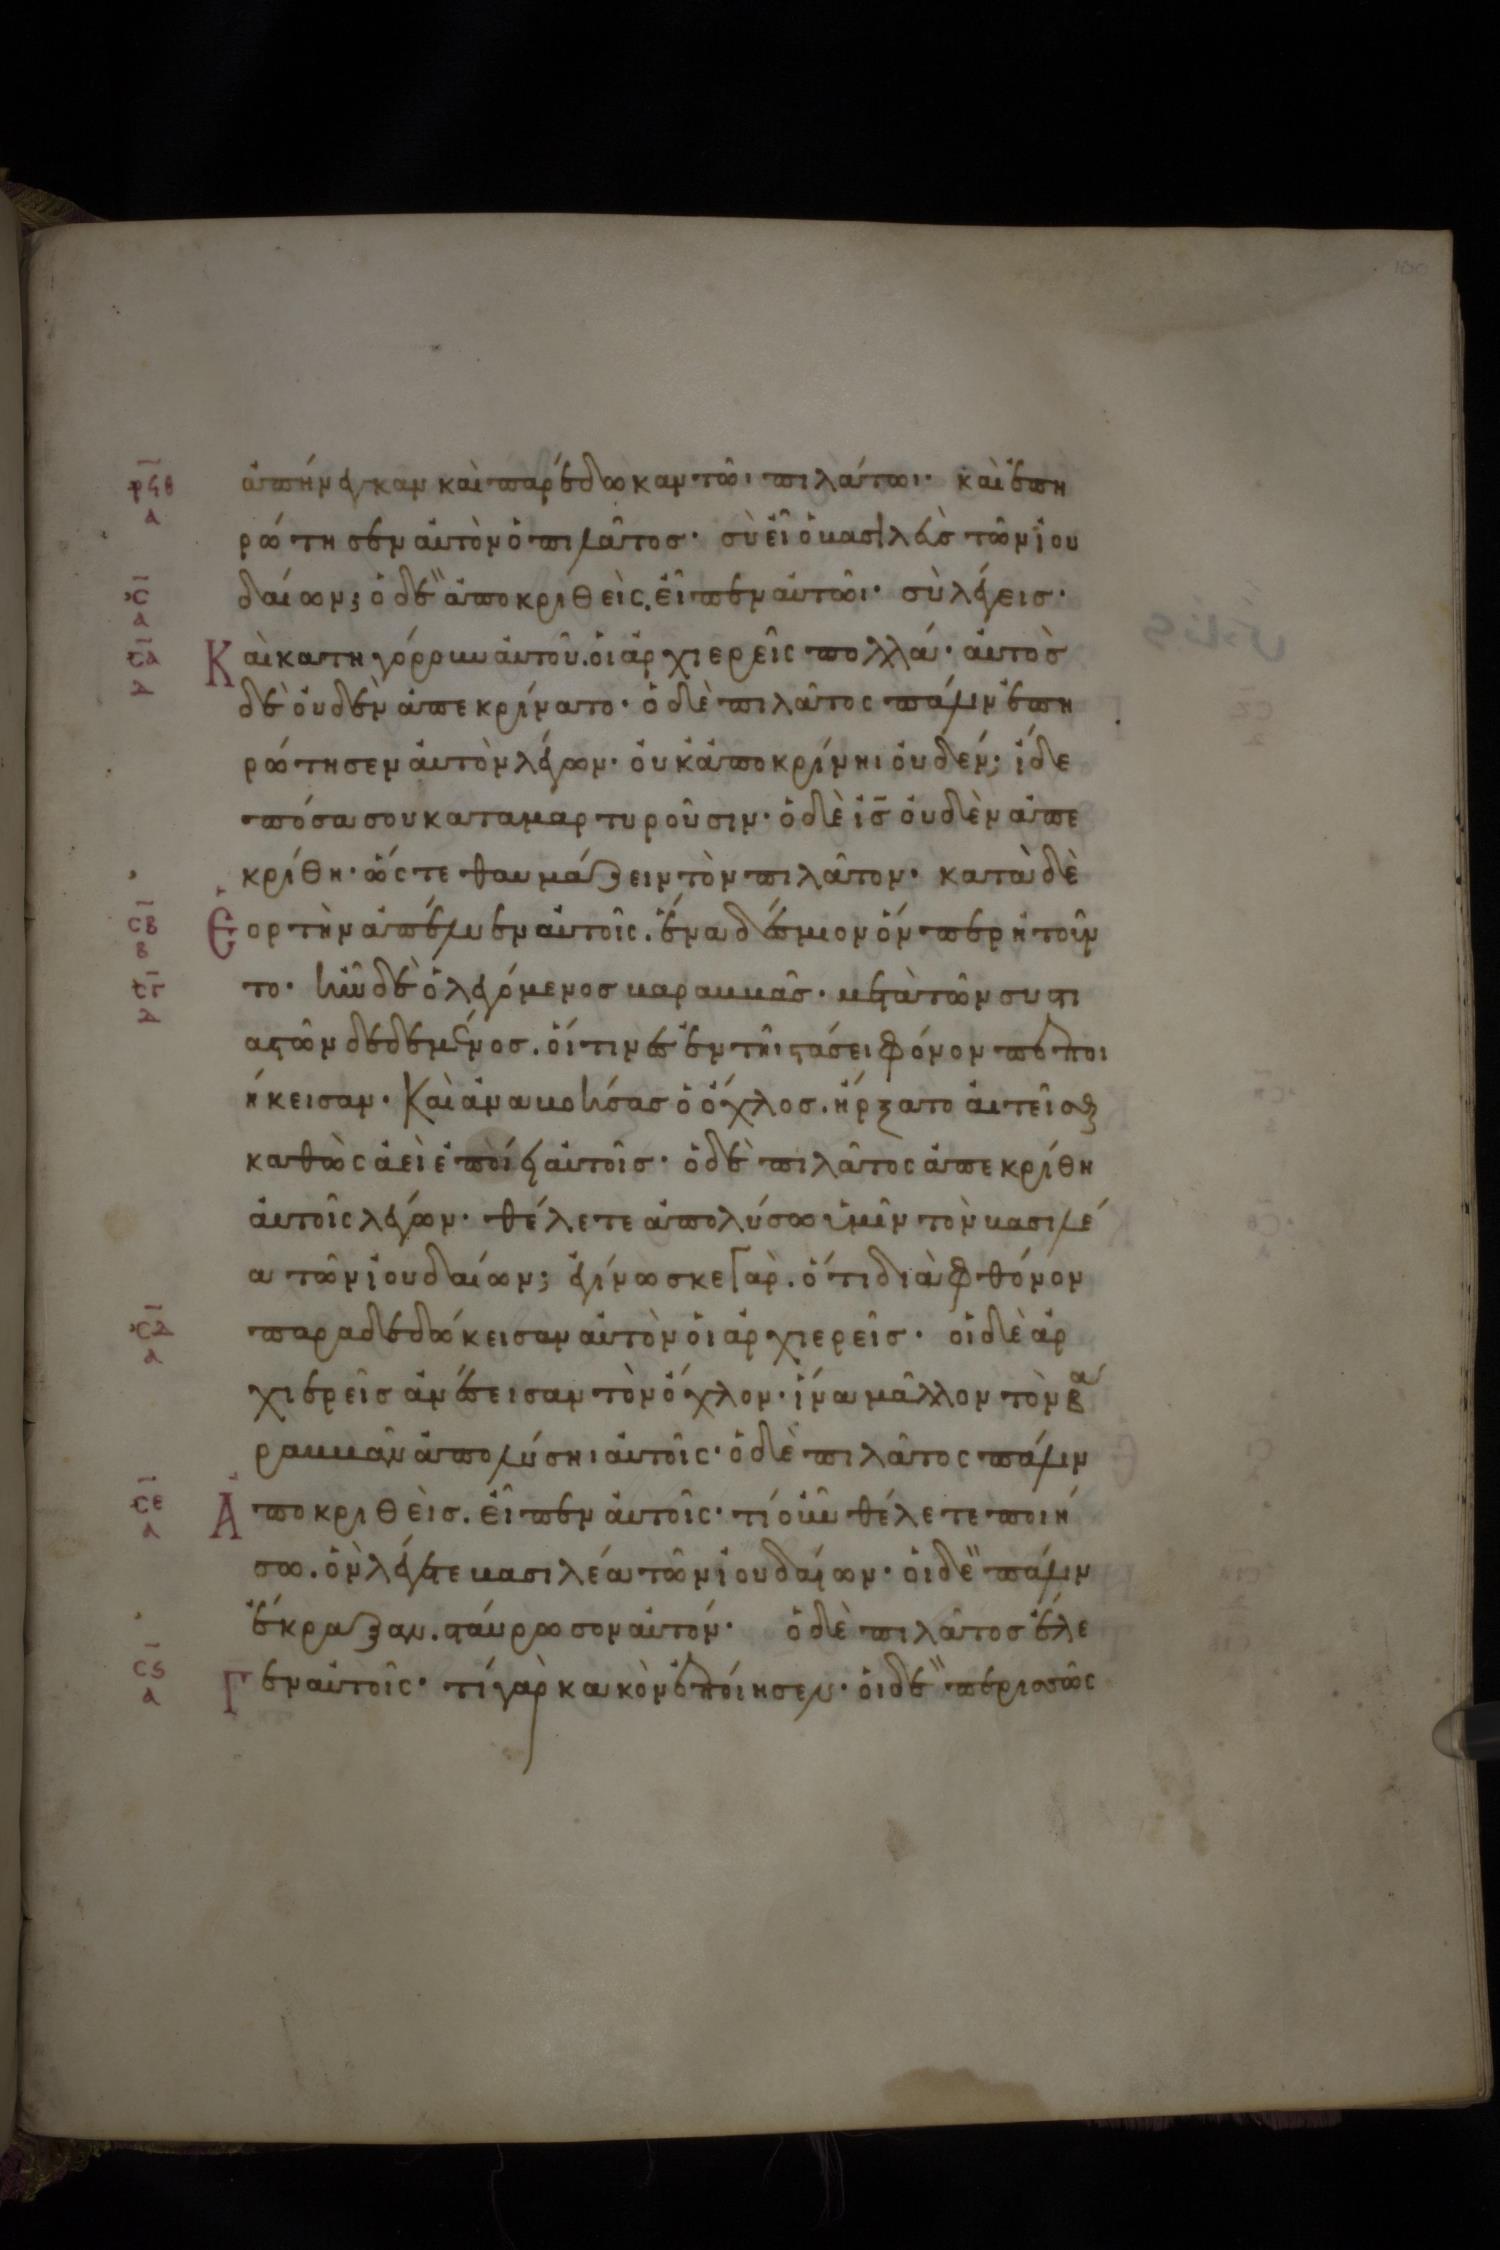 ρϟθ α ἀπήνεγκαν καὶ παρέδωκαν τῶι πιλάτωι· καὶ ἐπη
ρώτησεν αὐτὸν ὁ πιλᾶτος· σὺ εἶ ὁ βασιλεὺς τῶν ἰου
σ α δαίων; ὁ δὲ ἀποκριθεὶς. εἶπεν αὐτῶι· σὺ λέγεις·
σα δ Καὶ κατηγόρουν αὐτοῦ. οἱ ἀρχιερεῖς πολλά· αὐτὸς
δὲ οὐδὲν ἀπεκρίνατο· ὁ δὲ πιλᾶτος πάλιν ἐπη
ρώτησεν αὐτὸν λέγων· οὐκ ἀποκρίνηι οὐδέν; ἴδε
πόσα σου καταμαρτυροῦσιν· ὁ δὲ ἰς̅ οὐδὲν ἀπε
κρίθη· ὥστε θαυμάζειν τὸν πιλᾶτον· κατὰ δὲ
σβ β Ἑορτὴν ἀπέλυεν αὐτοῖς. ἕνα δέσμιον ὃν περ ἠτοῦν
σγ δ το· ἦν δὲ ὁ λεγόμενος βαραββᾶς· μετὰ τῶν συστι
αστῶν δεδεμένος. οἵτινες ἐν τῆι στάσει φόνον πεποι
ήκεισαν· Καὶ ἀναβοήσας ὁ ὄχλος. ἤρξατο αἰτεῖσθαι
καθὼς ἀεὶ ἐποίει αὐτοῖς· ὁ δὲ πιλᾶτος ἀπεκρίθη
αὐτοῖς λέγων· θέλετε ἀπολύσω ὑμῖν τὸν βασιλέ
α τῶν ἰουδαίων; ἐγίνωσκε γὰρ. ὅτι διὰ φθόνον
σδ α παραδεδώκεισαν αὐτὸν οἱ ἀρχιερεῖς· οἱ δὲ ἀρ
χιερεῖς ἀνέπεισαν τὸν ὄχλον· ἵνα μᾶλλον τὸν βα
ραββᾶν ἀπολύσηι αὐτοῖς· ὁ δὲ πιλᾶτος πάλιν
σε α Ἀποκριθεὶς. εἶπεν αὐτοῖς· τί οὖν θέλετε ποιή
σω. ὃν λέγετε βασιλέα τῶν ἰουδαίων· οἱ δὲ πάλιν
ἔκραξαν. σταύρωσον αὐτόν· ὁ δὲ πιλᾶτος ἔλε
σϛ α Γεν αὐτοῖς· τί γὰρ κακὸν ἐποίησεν· οἱ δὲ περισσῶς